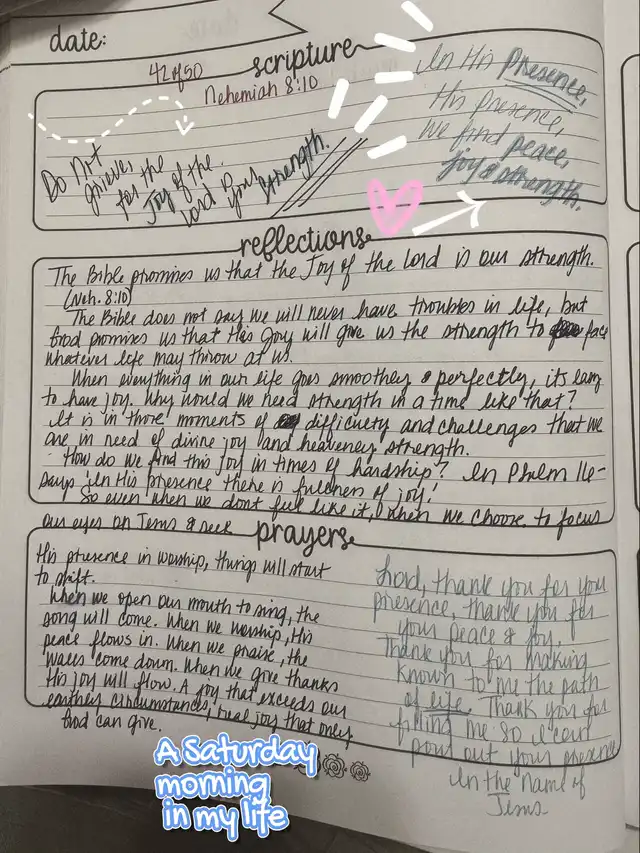 date:
scripture
42 of 50
Nehemiah 8:10
Do Not
grieves
for the
Joy of the
Lord is your strength.
In His Presence,
His presence,
we find peace,
joy & strength.
reflections
The Bible promises us that the Joy of the Lord is our strength.
(Neh. 8:10)
The Bible does not say we will never have troubles in life, but
God promises us that His Joy will give us the strength to face
whatever life may throw at us.
When everything in our life goes smoothly & perfectly, its easy
to have joy. Why would we need strength in a time like that?
It is in those moments of difficulty and challenges that we
are in need of divine joy and heavenly strength.
How do we find this Joy in times of hardship? In Psalm 16-
says 'In His presence there is fullness of joy!
So even when we dont feel like it, when we choose to focus
our eyes on Jesus & seek
prayers
His presence in worship, things will start
to shift.
When we open our mouth to sing, the
song will come. When we worship, His
peace flows in. When we praise, the
walls come down. When we give thanks
His joy will flow. A joy that exceeds our
earthly circumstances, real joy that only
God can give.
Lord, thank you for your
presence, thank you for
your peace & joy.
Thank you for making
known to me the path
of life. Thank you for
filling me so I can
pour out your presence
In the name of
Jesus.
A Saturday
morning
in my life